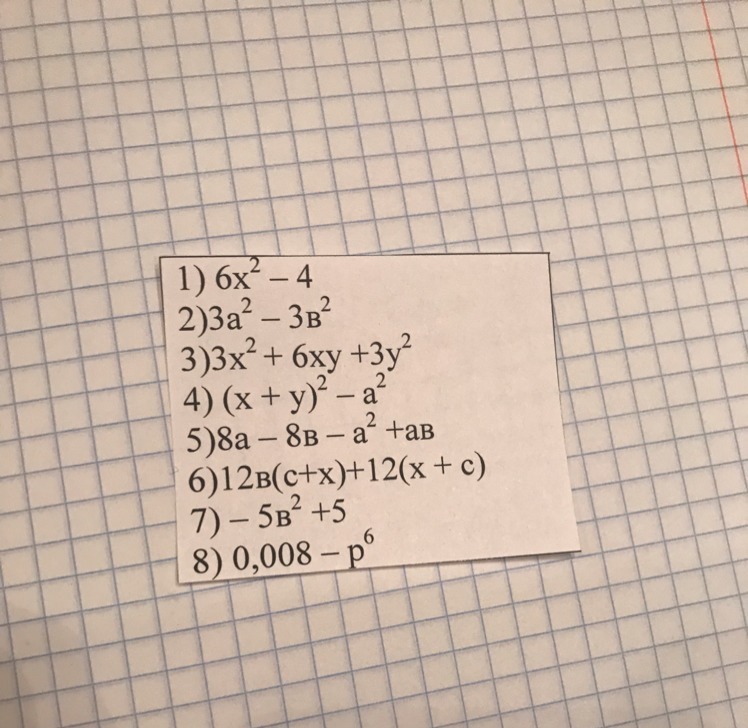 1) 6x² – 4
2)3a² – 3в²
3)3x² + 6xy +3y²
4) (x + y)² – a²
5)8a – 8в – a² +aв
6)12в(c+x)+12(x + c)
7) – 5в² +5
8) 0,008 – p⁶